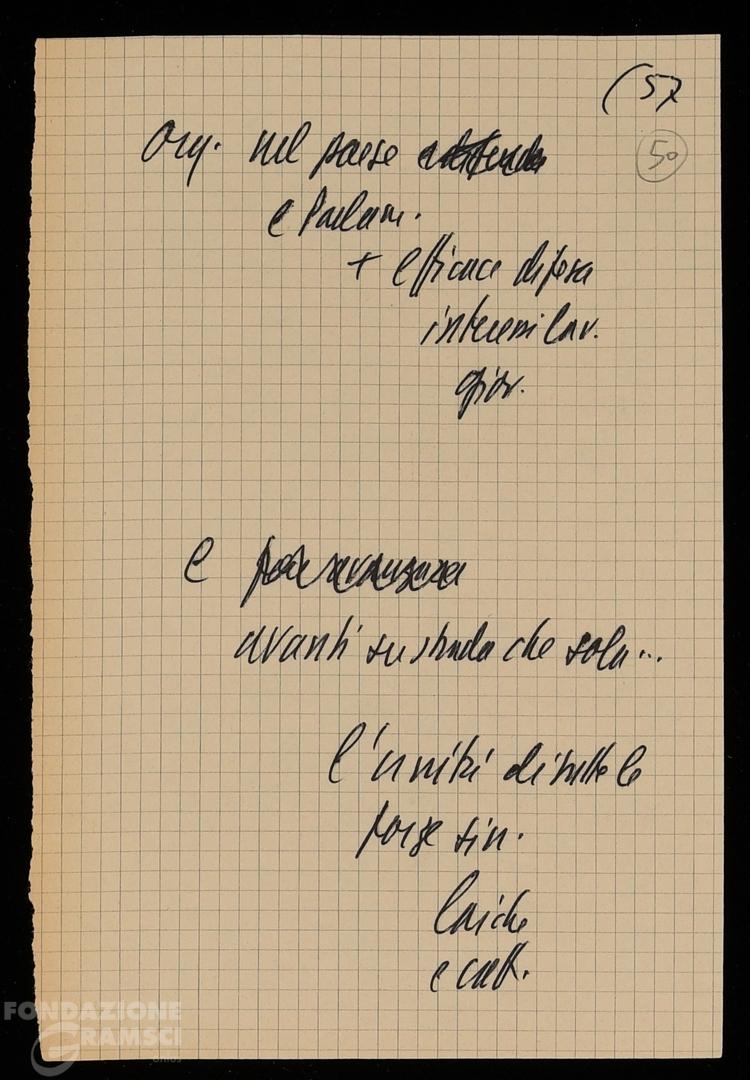 (57
50
Org. nel paese
e Parlam.
+ efficace difesa
interessi lav.
giov.
e
avanti su strada che sola...
l'unità di tutte le
forze sin.
laiche
e catt.
FONDAZIONE
GRAMSCI
onlus